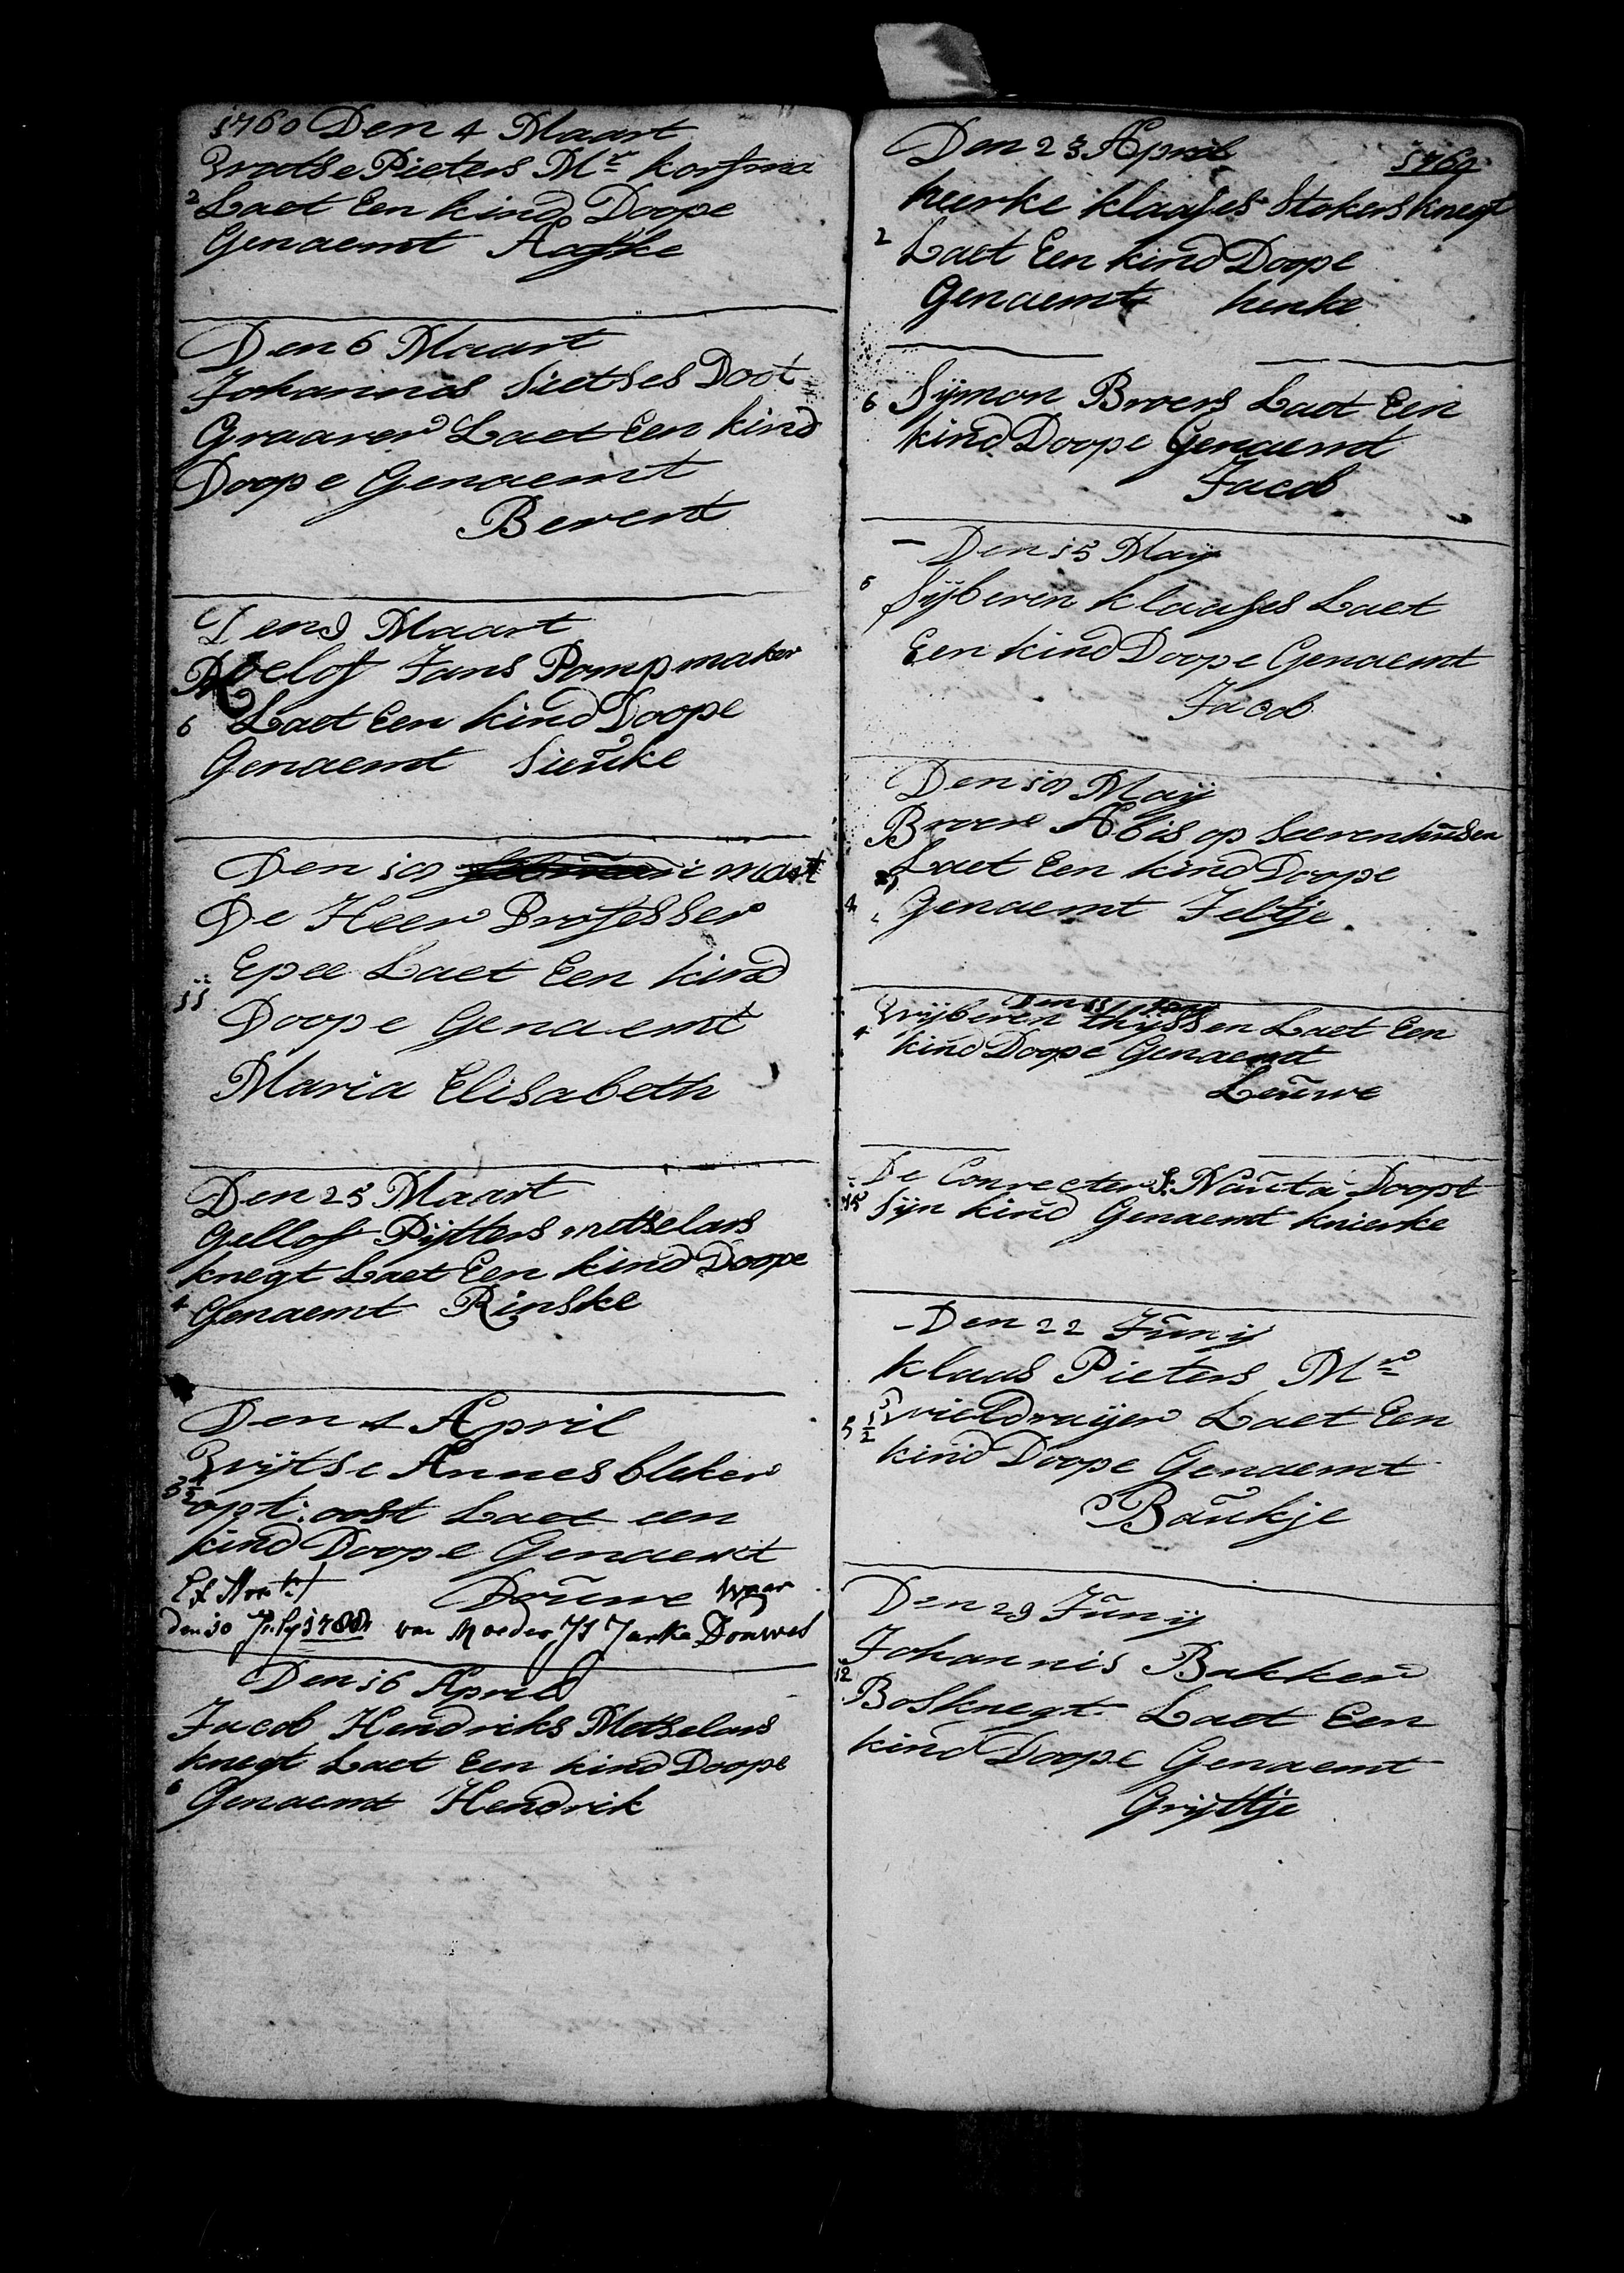 1760 Den 4 Maart
Wootse Pieters Mr korfma
2 Laet Een kind Doope
Genaemt Aafke
Den 6 Maart
Johannes Sietses Doot
Graaver Laet Een kind
Doope Genaemt
Berent
Den 9 Maart
Roelof Jans Pompmaker
6 Laet Een kind Doope
Genaemt Sieuke
Den 19 maart
De Heer Professer
Epee Laet Een kind
11 Doope Genaemt
Maria Elisabeth
Den 25 Maart
Gellof Pijtters metselars
knegt Laet Een kind Doope
4 Genaemt Rinske
Den 4 April
Wijtse Annes bleker
5 1/2 opt: oost Laet een
kind Doope Genaemt
Douwe waar
den 10 July 1788 van Moeder Is Jarke Douwes
Den 16 April
Jacob Hendriks Metselars
knegt Laet Een kind Doope
6 Genaemt Hendrik
Den 23 April 1760
heerke klaases Stokers knegt
2 Laet Een kind Doope
Genaemt henke
6 Sijmon Broers Laet Een
kind Doope Genaemt
Jacob
Den 15 Maij
6 Sijberen klaases Laet
Een kind Doope Genaemt
Jacob
Den 19 Maij
Broer Abis op Seerenhusen
Laet Een kind Doope
4 Genaemt Jeltje
Wijberen thijssen Laet Een
4 kind Doope Genaemt
Leuwe
De Conrecter S: Nauta Doopt
Sijn kind Genaemt knierke
Den 22 Junij
klaas Pieters Mr
5 1/2 wieldraijer Laet Een
kind Doope Genaemt
Baukje
Den 29 Junij
Johannis Bakker
12 Bosknegt Laet Een
kind Doope Genaemt
Grijttje